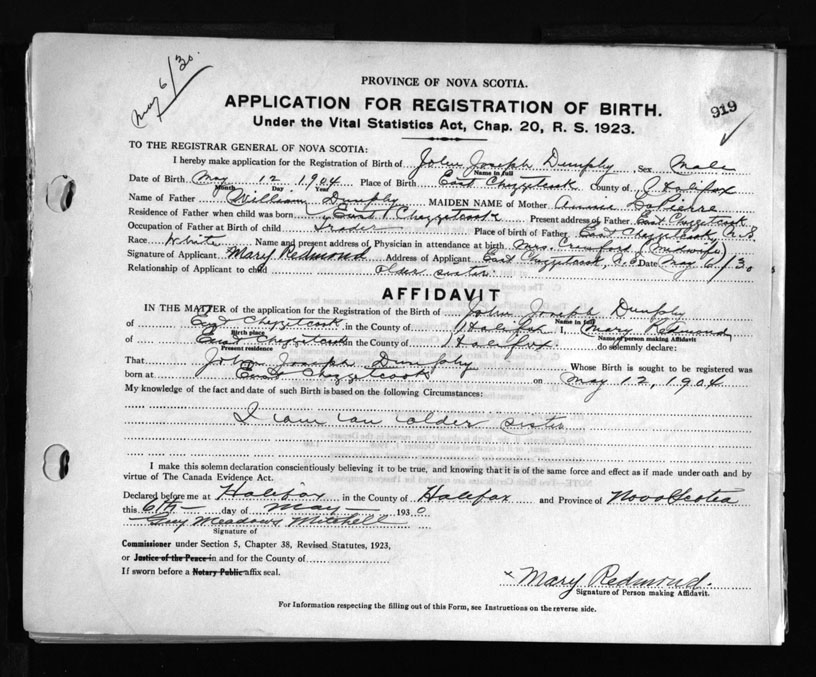 May 6/30.
PROVINCE OF NOVA SCOTIA.
919
APPLICATION FOR REGISTRATION OF BIRTH.
Under the Vital Statistics Act, Chap. 20, R. S. 1923.
TO THE REGISTRAR GENERAL OF NOVA SCOTIA:
I hereby make application for the Registration of Birth of John Joseph Dumphy Sex Male
Name in full
Date of Birth May 12 1904 Place of Birth East Chezzetcook County of Halifax
Month Day Year
Name of Father William Dumphy MAIDEN NAME of Mother Annie LaPierre
Residence of Father when child was born East Chezzetcook Present address of Father East Chezzetcook
Occupation of Father at Birth of child Trader Place of birth of Father East Chezzetcook, N.S
Race White Name and present address of Physician in attendance at birth Mrs. Crawford (Midwife)
Signature of Applicant Mary Redmond Address of Applicant East Chezzetcook, N.S Date May 6/30
Relationship of Applicant to child older sister
AFFIDAVIT
IN THE MATTER of the application for the Registration of the Birth of John Joseph Dumphy
Name in full
of East Chezzetcook in the County of Halifax I, Mary Redmond
Birth place Name of person making Affidavit
of East Chezzetcook in the County of Halifax do solemnly declare:
Present residence
That John Joseph Dumphy Whose Birth is sought to be registered was
born at East Chezzetcook on May 12, 1904
My knowledge of the fact and date of such Birth is based on the following Circumstances:
I am an older sister
I make this solemn declaration conscientiously believing it to be true, and knowing that it is of the same force and effect as if made under oath and by
virtue of The Canada Evidence Act.
Declared before me at Halifax in the County of Halifax and Province of Nova Scotia
this 6th day of May 1930
Guy Meadows Mitchell
Signature of
Commissioner under Section 5, Chapter 38, Revised Statutes, 1923,
or Justice of the Peace in and for the County of
If sworn before a Notary Public affix seal.
x Mary Redmond.
Signature of Person making Affidavit.
For Information respecting the filling out of this Form, see Instructions on the reverse side.